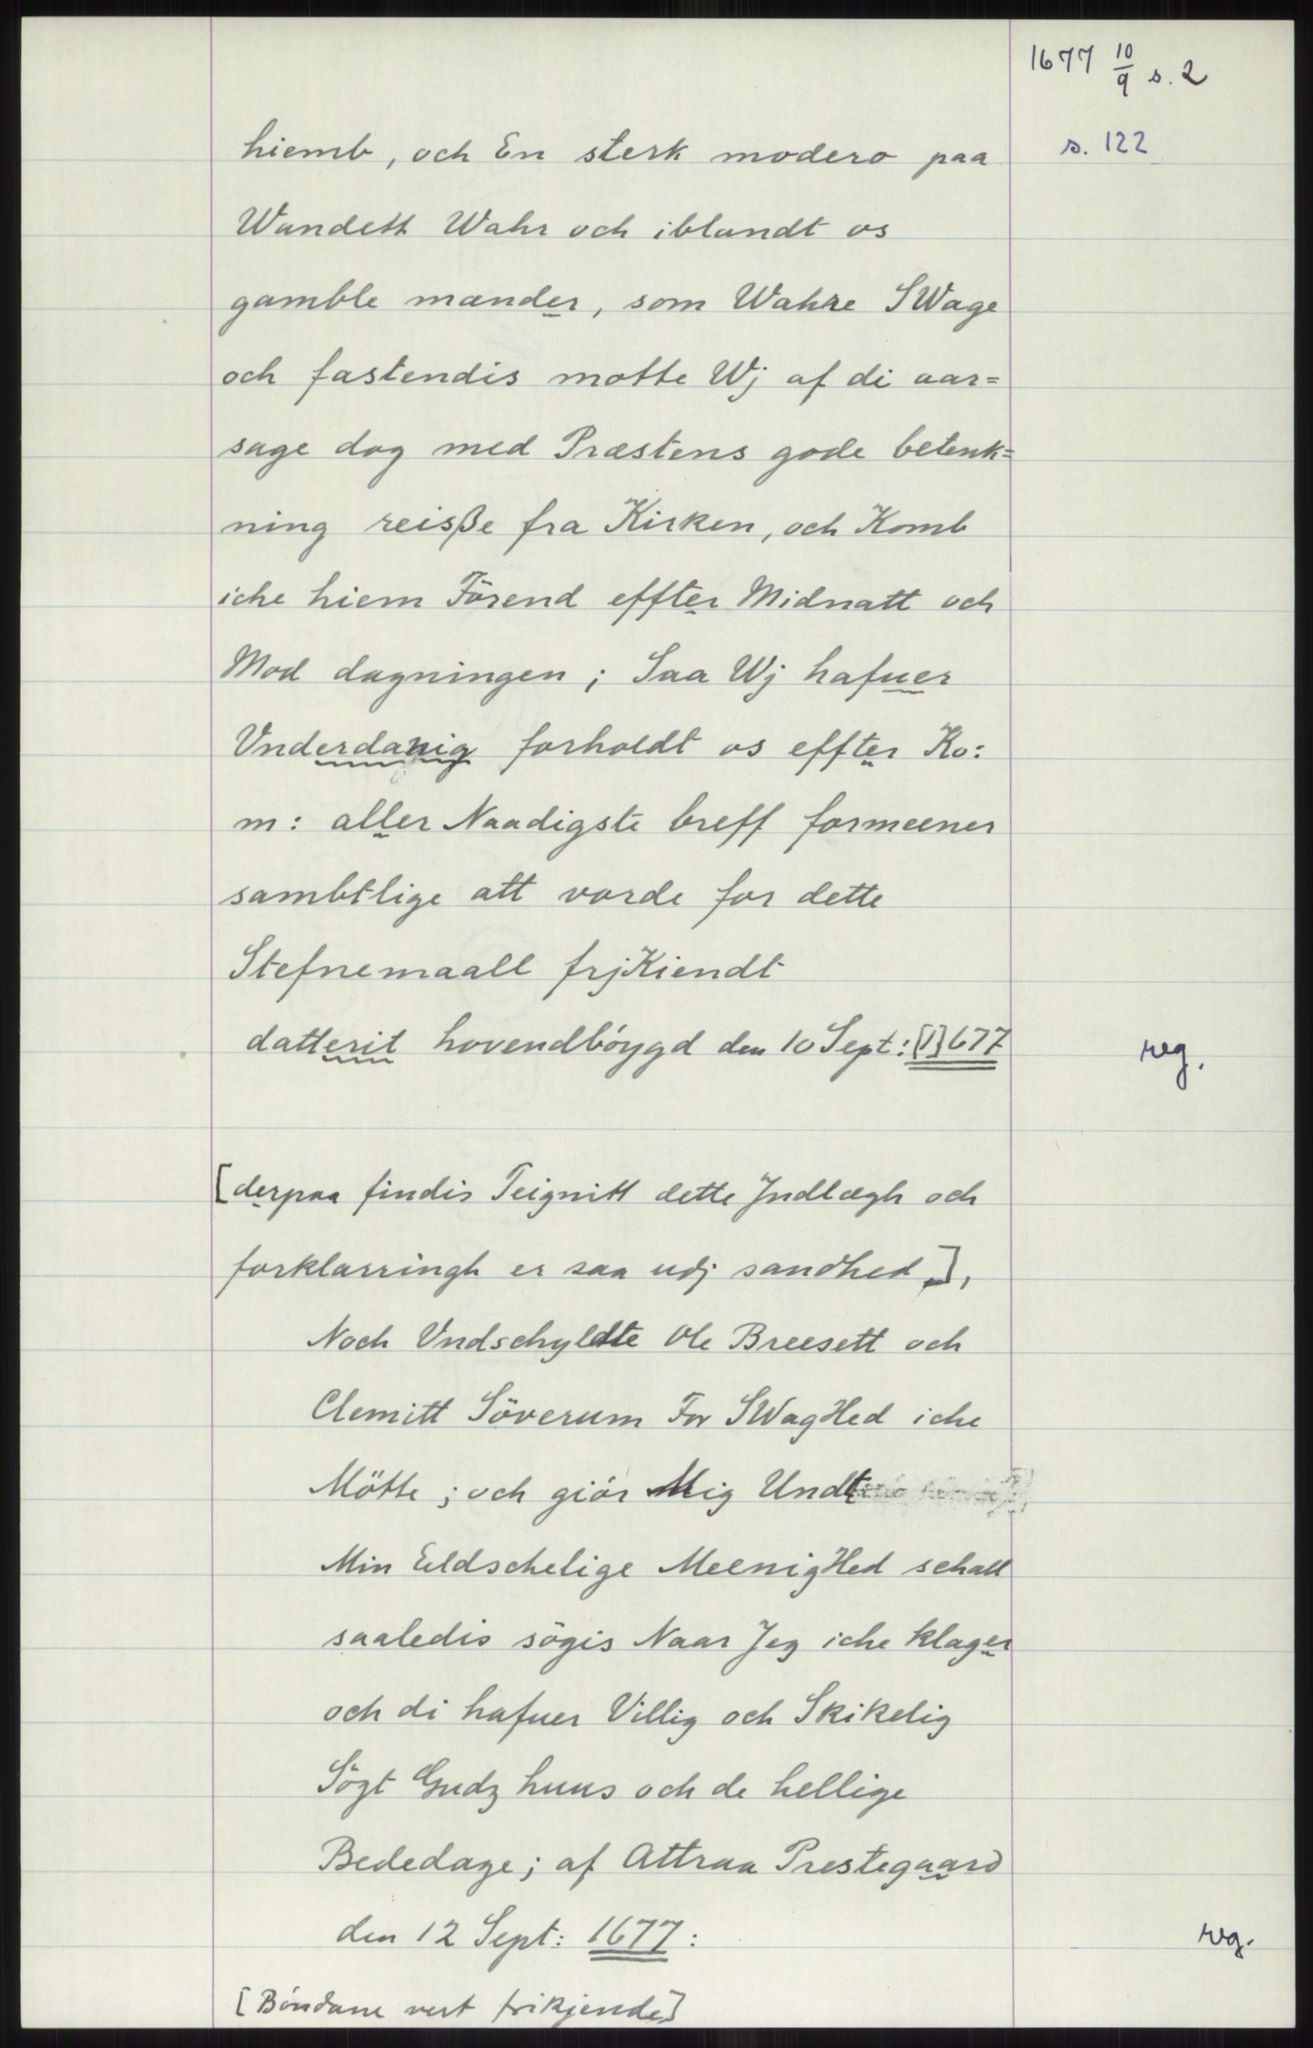 1677 10/9 s. 2
s. 122
hiemb, och En sterk modero paa
Wandett Wahr och iblandt os
gamble mænder, som Wahre SWage
och fastendis motte Wj af di aar=
sage dog med Præstens gode betenk=
ning reisße fra Kirken, och Komb
iche hiem Förend effter Midnatt och
Mod dagningen; Saa Wj hafuer
Vnderdanig forholdt os effter Ko:
m: aller Naadigste breff formeener
sambtlige att vorde for dette
Stefnemaall frjKiendt
datterit hovendböygd den 10 Sept: [1]677
reg.
[derpaa findis Teignitt dette Jndlægh och
forklarringh er saa udj sandhed],
Noch Vndschyldte Ole Breesett och
Clemitt Söverum For SWagHed iche
Mötte; och giör Mig Undt
Min Eeldschelige MeenigHed schall
saaledis sögis Naar Jeg iche klager
och di hafuer Villig och Skikelig
Sögt Gudz huus och de hellige
Bededage; af Attraa Prestegaard
den 12 Sept: 1677:
reg.
[Böndane vert frikjende]